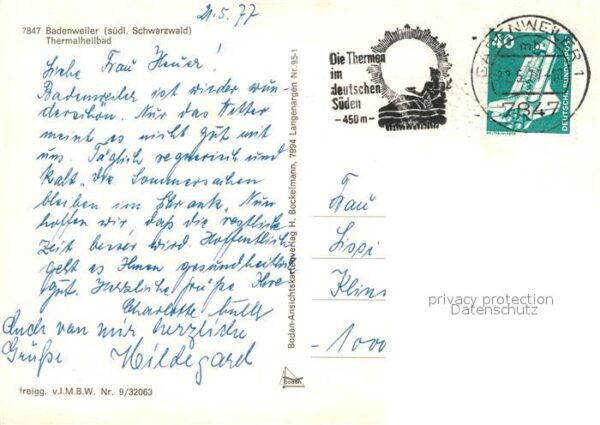 21.5.77
7847 Badenweiler (südl. Schwarzwald)
Thermalheilbad
Liebe Frau Heuer!
Badenweiler ist wieder wun-
derschön. Nur das Wetter
meint es nicht gut mit
uns. Täglich regnerisch und
kalt, die Sommersachen
bleiben im Schrank. Nun
hoffen wir, daß die restliche
Zeit besser wird. Hoffentlich
geht es Ihnen gesundheitlich
gut. Herzliche Grüße Ihre
Charlotte
Auch von mir herzliche
Grüße Hildegard
freigg. v.I.M.B.W. Nr. 9/32063
Bodan-Ansichtskartenverlag H. Bockelmann, 7994 Langenargen Nr. 95-1
bodan
Die Thermen
im
deutschen
Süden
-450m-
BADENWEILER 1
7847
40
DEUTSCHE BUNDESPOST
Frau
Lissi
Klins
-1000
privacy protection
Datenschutz